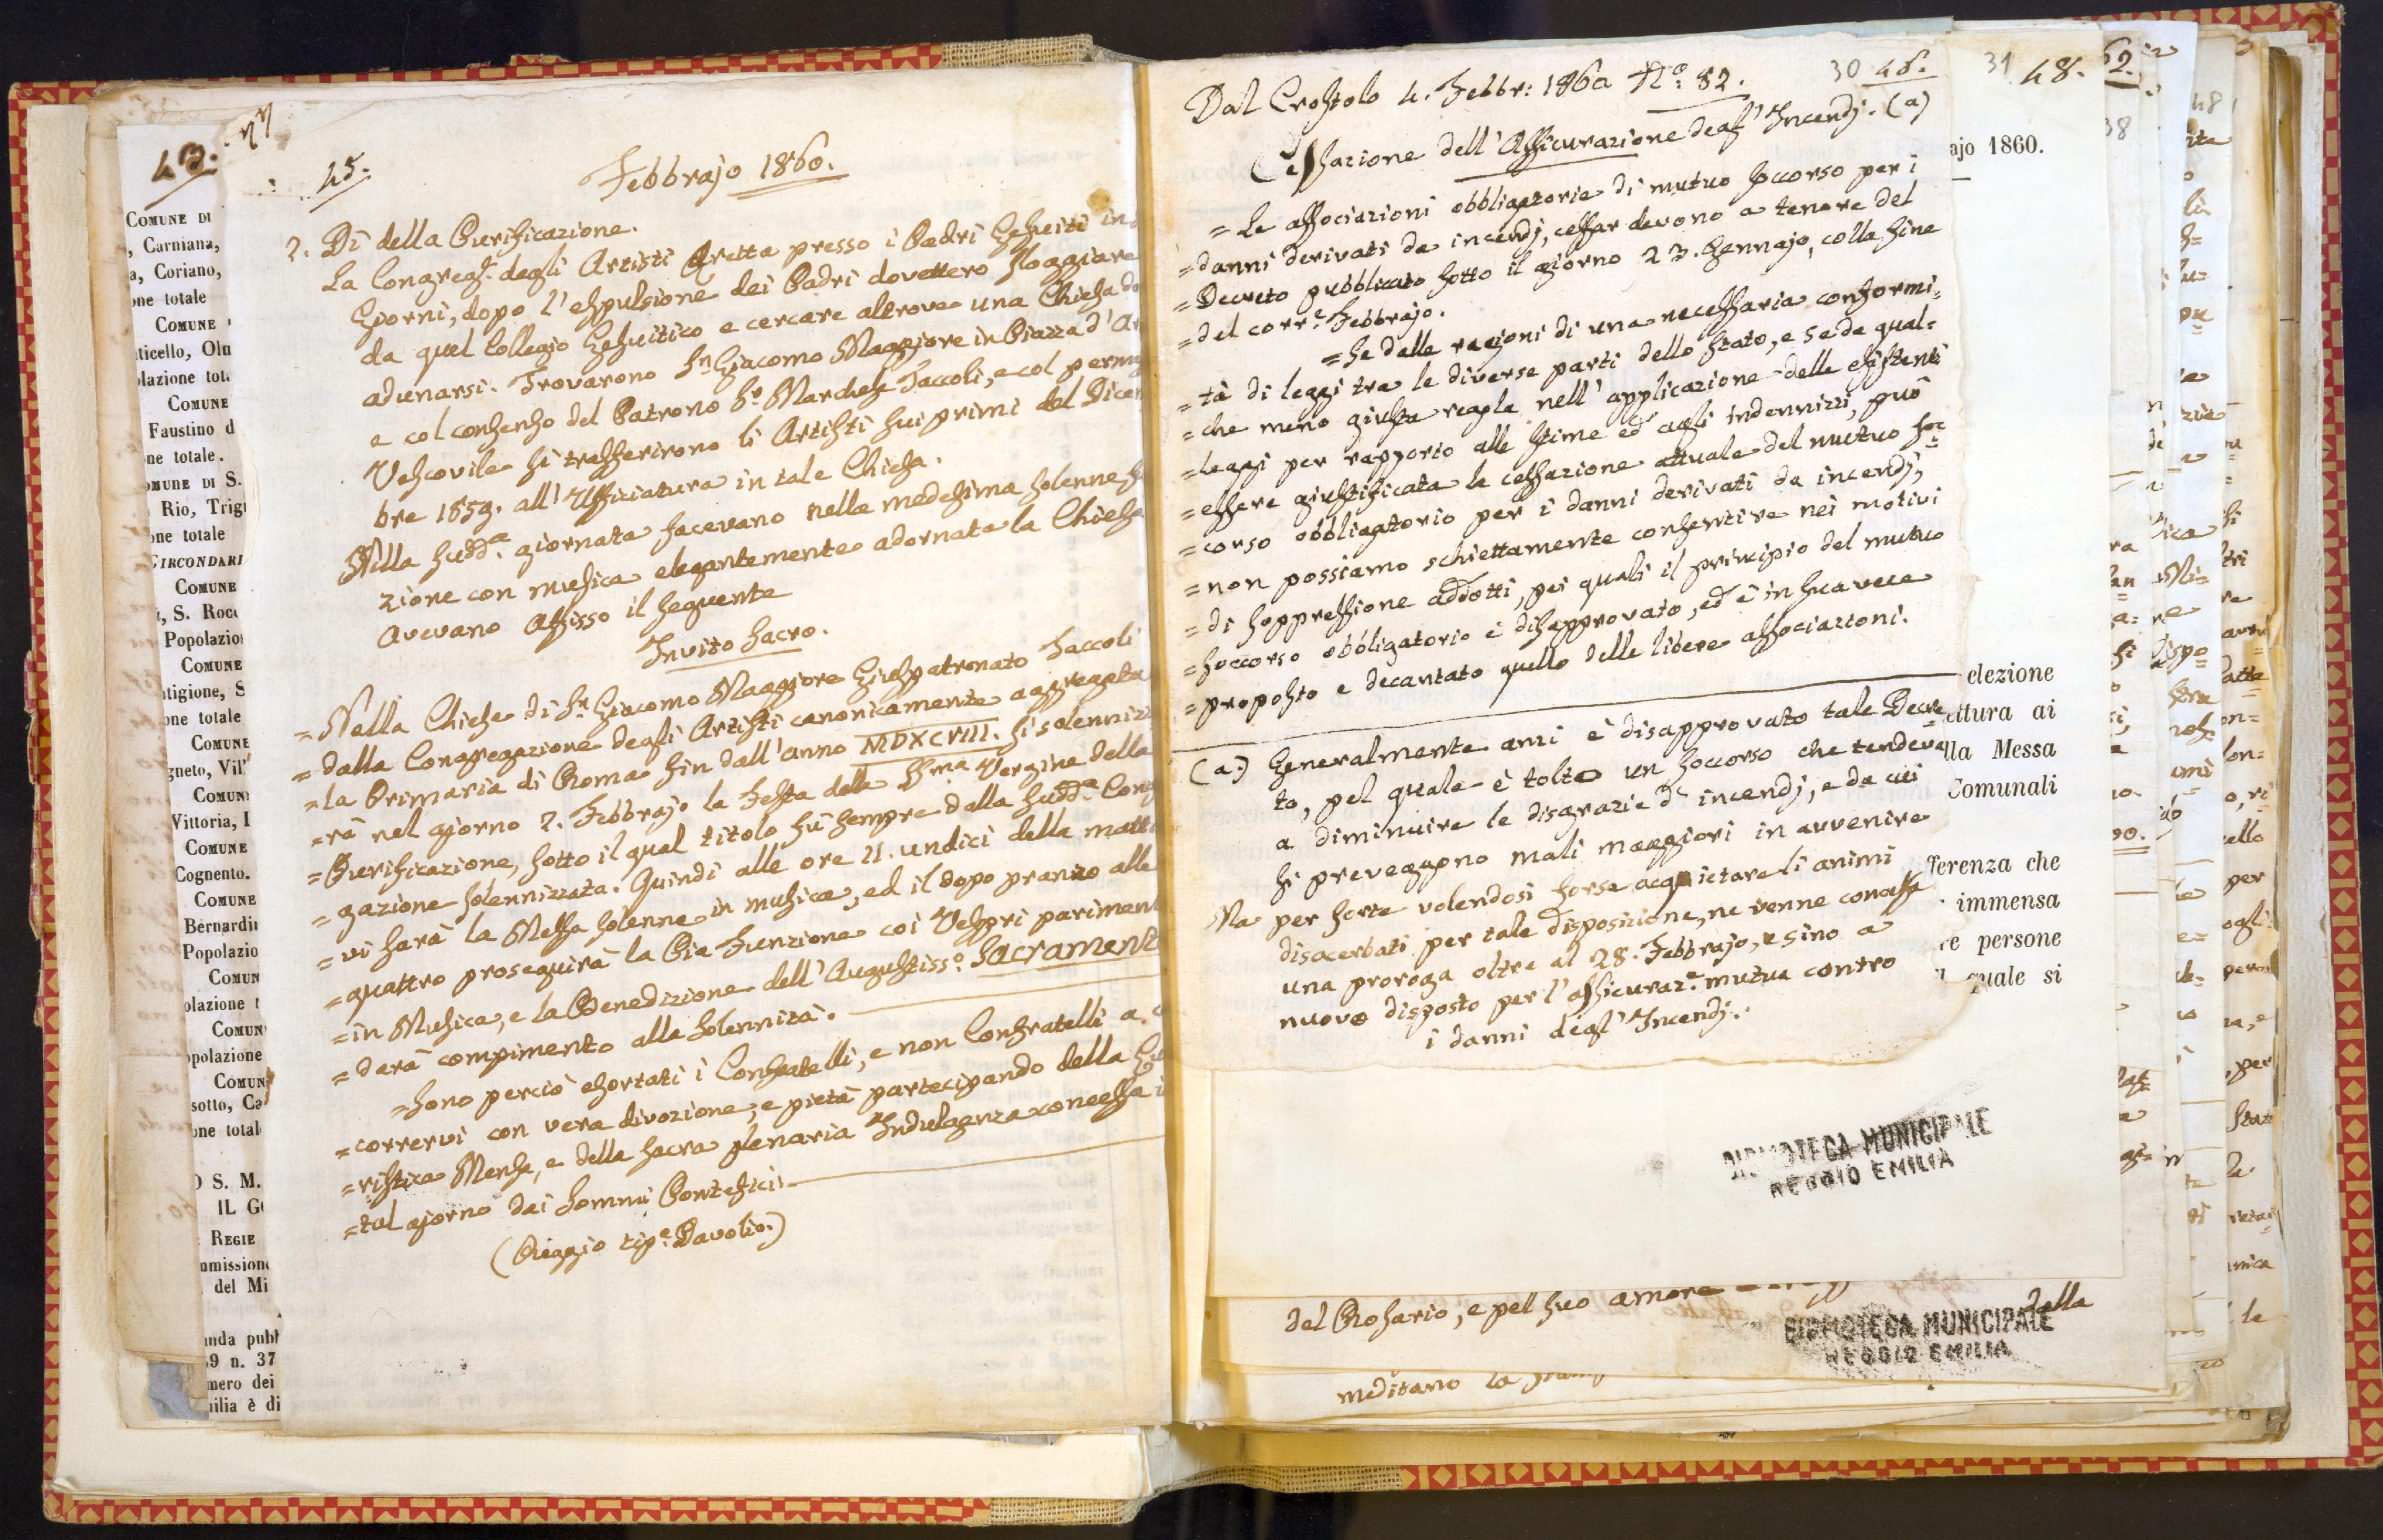 43.
COMUNE DI
, Carniana,
a, Coriano,
one totale
COMUNE
ticello, Olm
lazione tot
COMUNE
Faustino d
ne totale.
OMUNE DI S.
Rio, Trig
one totale
CIRCONDARI
COMUNE
, S. Rocc
Popolazion
COMUNE
tigione, S
one totale
COMUNE
gneto, Vil
COMUN
Vittoria, I
COMUNE
Cognento.
COMUNE
Bernardin
Popolazio
COMUN
olazione t
COMUN
opolazione
COMUN
sotto, Ca
one total
O S. M.
IL G
REGIE
mmission
del Mi
anda pubb
59 n. 37
mero dei
nilia è di
45.
Febbrajo 1860.
2. Dì della Purificazione.
La Congregaz. degli Artisti eretta presso i Padri Gesuiti in
Giorni, dopo l'espulsione dei Padri dovettero sloggiare
da quel Collegio Gesuitico e cercare altrove una Chiesa do
adunarsi. Trovarono Sn Giacomo Maggiore in Piazza d'Ar
e col consenso del Patrono So Marchese Taccoli, e col perm
Vescovile si trasferirono li Artisti sui primi del Dicem
bre 1859. all'Uffiziatura in tale Chiesa.
Nella sudda. giornata facevano nella medesima solenne f
zione con musica elegantemente adornata la Chiesa
Avevano affisso il seguente
Invito Sacro.
=Nella Chiesa di Sn Giacomo Maggiore Giuspatronato Taccoli
=dalla Congregazione degli Artisti canonicamente aggregata
=la Primaria di Roma sin dall'anno MDXCVIII. si solenniz
=rà nel giorno 2. Febbrajo la Festa della SSma Vergine della
=Purificazione, sotto il qual titolo fù sempre dalla sudda. Cong
=gazione solennizzata. Quindi alle ore 11. undici della matti
=vi sarà la Messa solenne in musica, ed il dopo pranzo alle
=quattro proseguirà la Pia Funzione coi Vespri pariment
=in Musica, e la Benedizione dell'Augustisso. Sacrament
=darà compimento alla solennità.
=Sono perciò esortati i Confratelli, e non Confratelli a c
=corrervi con vera divozione, e pietà partecipando della Eu
=ristica Mensa, e della sacra plenaria Indulgenza concessa i
=tal giorno dai Sommi Pontefici.
(Reggio tipa. Davolio.)
Dal Crostolo 4. Febbr: 1860 No: 82.
30 46.
Cessazione dell'Assicurazione degl' Incendj. (a)
=Le associazioni obbligatorie di mutuo soccorso per i
=danni derivati da incendj, cessar devono a tenore del
=Decreto pubblicato sotto il giorno 23. Gennajo, colla fine
=del corre. Febbrajo.
=Se dalle ragioni di una necessaria conformi=
=tà di leggi tra le diverse parti dello Stato, e se da qual=
=che meno giusta regola nell'applicazione delle esistenti
=leggi per rapporto alle stime ed agli indennizzi, può
=essere giustificata la cessazione attuale del mutuo soc=
=corso obbligatorio per i danni derivati da incendj,
=non possiamo schiettamente consentire nei motivi
=di soppressione addotti, pei quali il principio del mutuo
=soccorso obbligatorio è disapprovato, ed è in sua vece
=proposto e decantato quello delle libere associazioni.
(a.) Generalmente anzi è disapprovato tale Decre=
to, pel quale è tolto un soccorso che tendeva
a diminuire le disgrazie d'incendj, e da cui
si preveggono mali maggiori in avvenire
Ma per forse volendosi forse acquietare li animi
disacerbati per tale disposizione, ne venne concessa
una proroga oltre al 28. Febbrajo, e sino a
nuovo disposto per l'assicuraze. mutua contro
i danni degl'Incendj.
31 48.
ajo 1860.
elezione
ttura ai
lla Messa
Comunali
ferenza che
immensa
re persone
quale si
BIBLIOTECA MUNICIPALE
REGGIO EMILIA
del Rosario, e pel suo amore
dalla
BIBLIOTECA MUNICIPALE
REGGIO EMILIA
meditano la